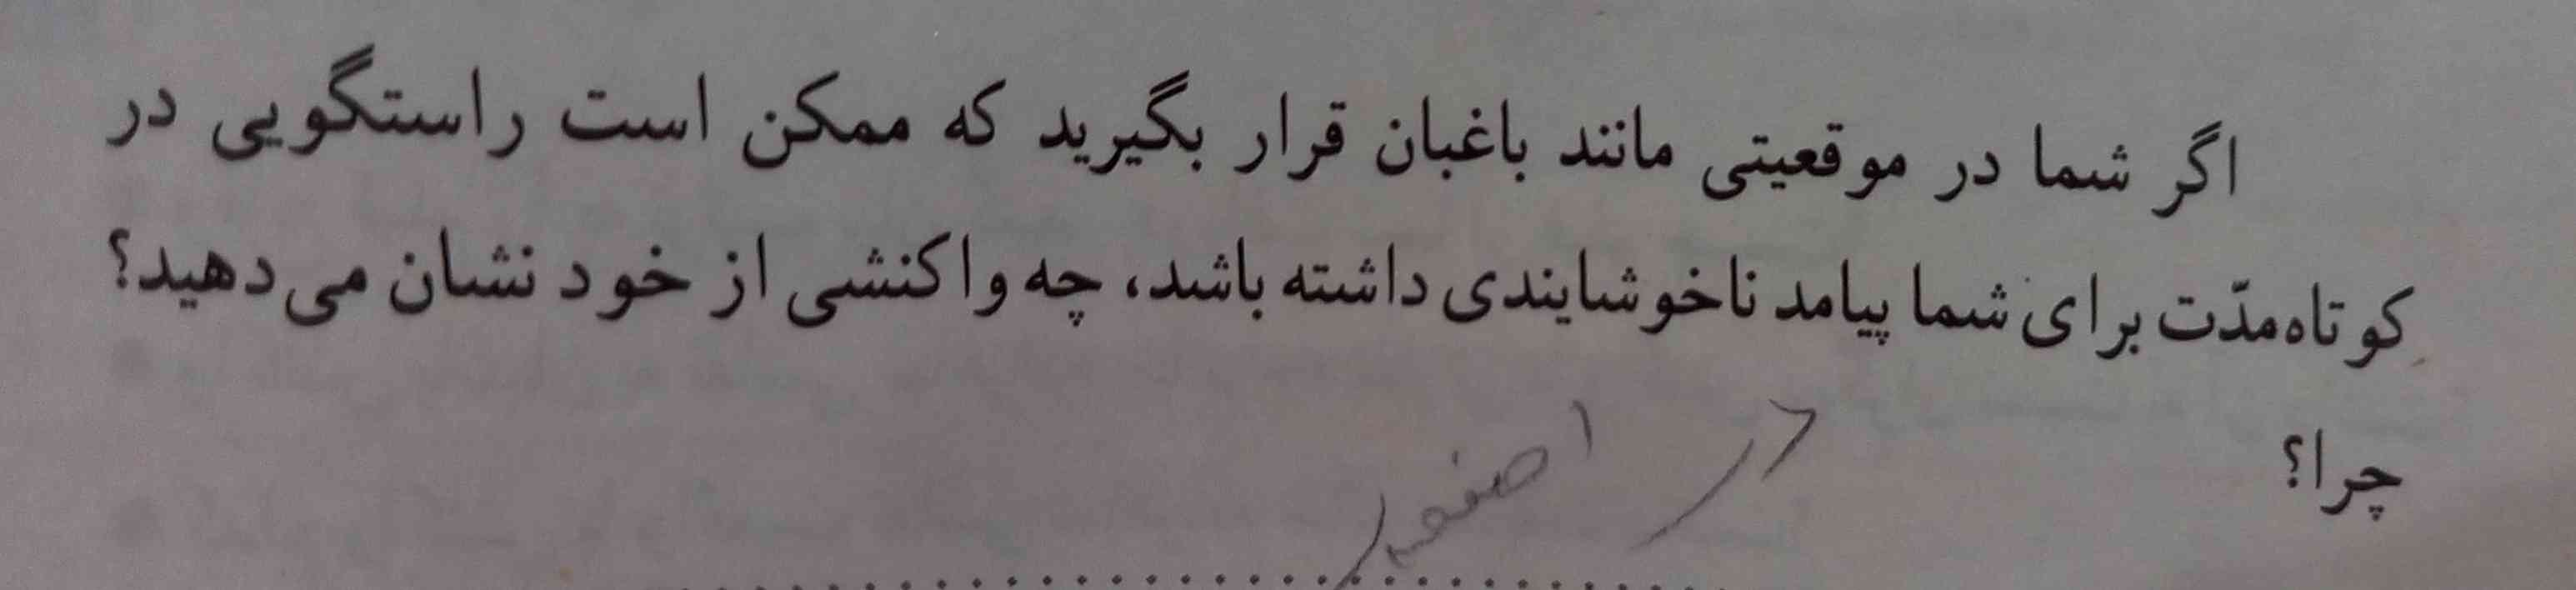 اگر شما در موقعیتی مانند باغبان قرار بگیرید که ممکن است راستگویی در
کوتاه‌مدّت برای شما پیامد ناخوشایندی داشته باشد، چه واکنشی از خود نشان می‌دهید؟
چرا؟
در